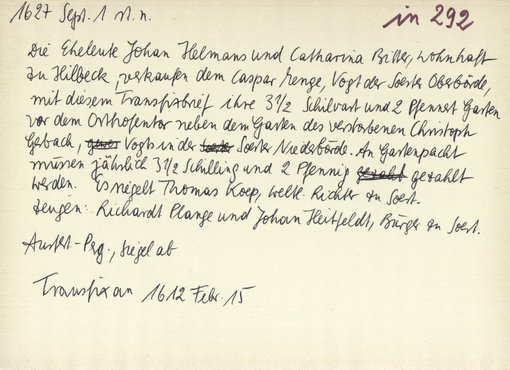 1627 Sept. 1 st. n.
in 292
Die Eheleute Johan Helmans und Catharina Britter, wohnhaft
zu Hilbeck, verkaufen dem Caspar Menge, Vogt der Soester Oberbörde,
mit diesem Transfixbrief ihre 3 1/2 Schilvart und 2 Pfennert Garten
vor dem Osthofentor neben dem Garten des verstorbenen Christoph
Gerbach, Vogts in der Soester Niederbörde. An Gartenpacht
müssen jährlich 3 1/2 Schilling und 2 Pfennig gezahlt
werden. Es siegelt Thomas Koep, weltl. Richter zu Soest.
Zeugen: Richardt Plange und Johan Heitfeldt, Bürger zu Soest.
Ausfert.-Perg., Siegel ab
Transfix an 1612 Febr. 15